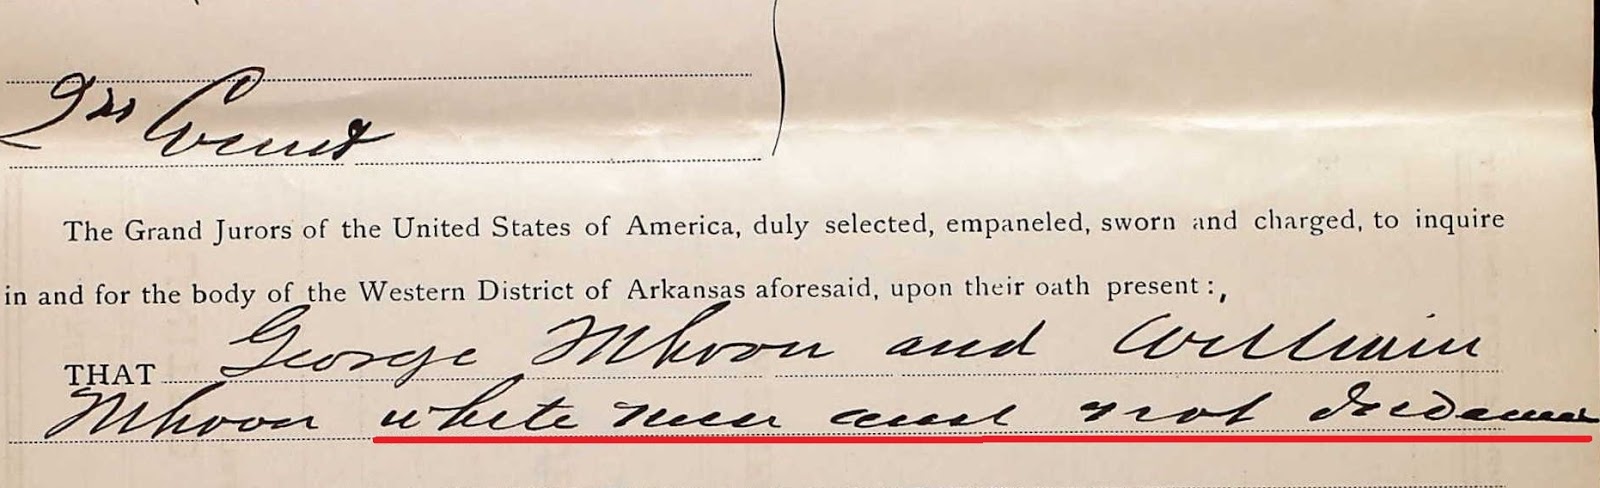 1st Count
The Grand Jurors of the United States of America, duly selected, empaneled, sworn and charged, to inquire
in and for the body of the Western District of Arkansas aforesaid, upon their oath present :,
THAT George Mhoon and William
Mhoon white men and not Indians